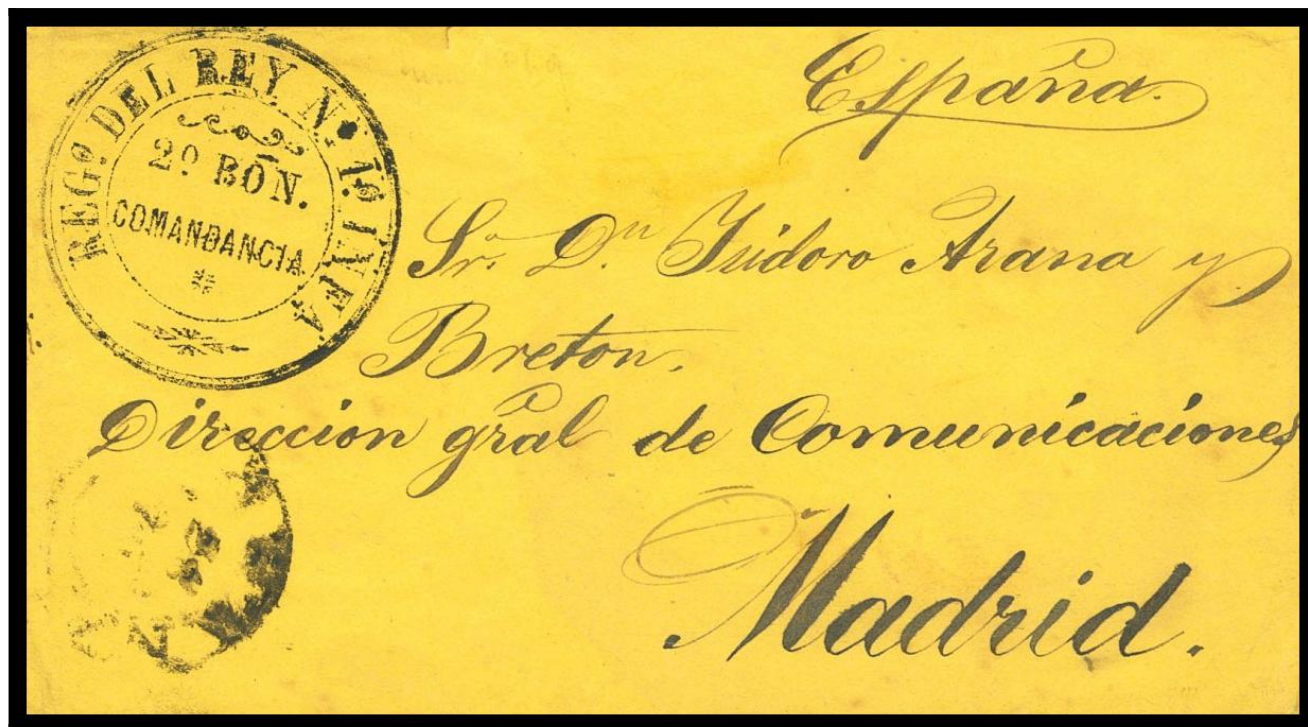 REGº DEL REY Nº 1º INFA
2º BÓN.
COMANDANCIA
España.
Sr. Dn Isidoro Arana y
Breton.
Direccion gral de Comunicaciones
Madrid.